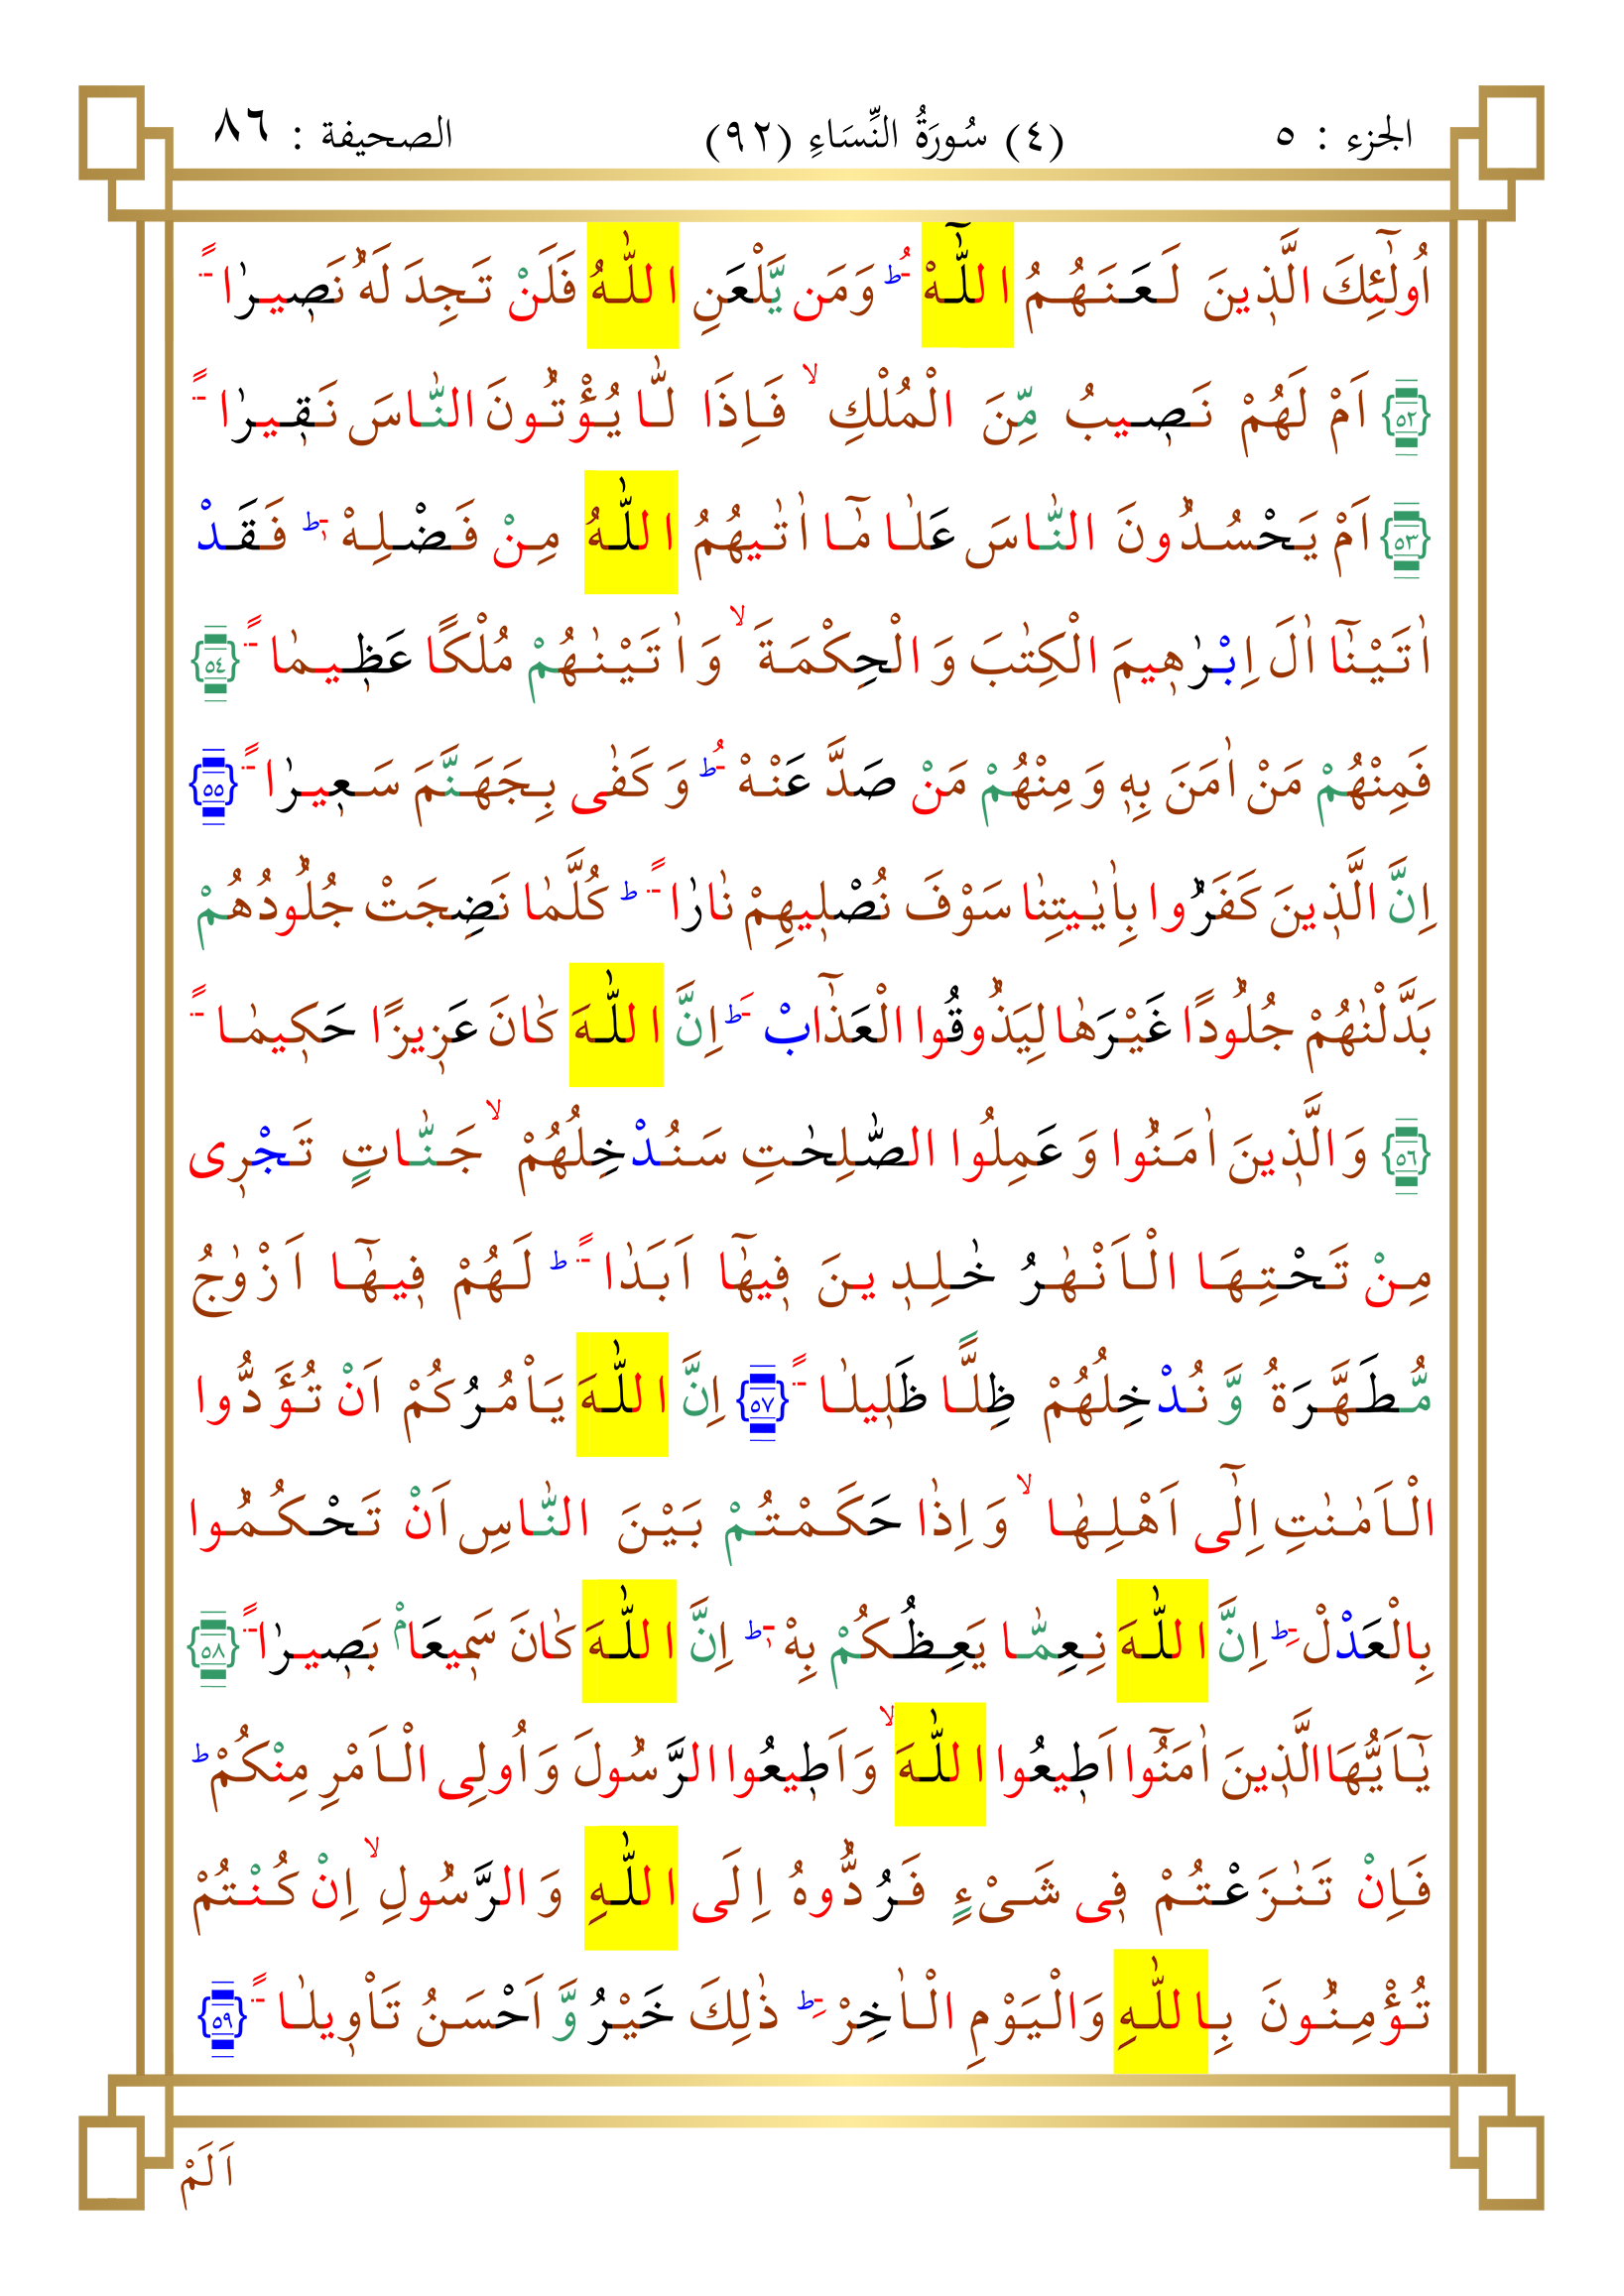 الجزء : ٥ (٤) سُورَةُ النِّسَاءِ (٩٢) الصحيفة : ٨٦
اُولٰٓئِكَ الَّذ۪ينَ لَعَنَهُمُ اللّٰٓهْ ُ ط وَمَن يَّلْعَنِ اللّٰهُ فَلَنْ تَجِدَ لَهُ نَص۪يرٰا ً
﴿٥٢﴾ اَمْ لَهُمْ نَص۪يبُ مِّنَ الْمُلْكِ ۙ فَاِذَا لّٰا يُؤْتُونَ النّٰاسَ نَق۪يرٰا ً
﴿٥٣﴾ اَمْ يَحْسُدُونَ النّٰاسَ عَلٰا مٰٓا اٰتٰيهُمُ اللّٰهُ مِنْ فَضْلِهْ ٖ ط فَقَدْ
اٰتَيْنٰٓا اٰلَ اِبْرٰه۪يمَ الْكِتٰبَ وَالْحِكْمَةَ ۙ وَاٰتَيْنٰهُمْ مُلْكًا عَظ۪يمٰا ً ﴿٥٤﴾
فَمِنْهُمْ مَنْ اٰمَنَ بِه۪ وَمِنْهُمْ مَنْ صَدَّ عَنْهْ ُ ط وَكَفٰى بِجَهَنَّمَ سَع۪يرٰا ً ﴿٥٥﴾
اِنَّ الَّذ۪ينَ كَفَرُوا بِاٰيٰيتِنٰا سَوْفَ نُصْل۪يهِمْ نٰارٰا ً ط كُلَّمٰا نَضِجَتْ جُلُودُهُمْ
بَدَّلْنٰهُمْ جُلُودًا غَيْرَهٰا لِيَذُوقُوا الْعَذٰٓابْ َ ط اِنَّ اللّٰهَ كٰانَ عَز۪يزًا حَك۪يمٰا ً
﴿٥٦﴾ وَالَّذ۪ينَ اٰمَنُوا وَعَمِلُوا الصّٰلِحٰتِ سَنُدْخِلُهُمْ ۙ جَنّٰاتٍ تَجْر۪ى
مِنْ تَحْتِهَا الْاَنْهٰرُ خٰلِد۪ينَ ف۪يهٰٓا اَبَدٰا ً ط لَهُمْ ف۪يهٰٓا اَزْوٰجُ
مُّطَهَّرَةُ وَّنُدْخِلُهُمْ ظِلًّا ظَل۪يلٰا ً ﴿٥٧﴾ اِنَّ اللّٰهَ يَاْمُرُكُمْ اَنْ تُؤَدُّوا
الْاَمٰنٰتِ اِلٰٓى اَهْلِهٰا ۙ وَاِذٰا حَكَمْتُمْ بَيْنَ النّٰاسِ اَنْ تَحْكُمُوا
بِالْعَدْلْ ِ ط اِنَّ اللّٰهَ نِعِمّٰا يَعِظُكُمْ بِهْ ٖ ط اِنَّ اللّٰهَ كٰانَ سَم۪يعَاۢ بَص۪يرٰا ً ﴿٥٨﴾
يٰٓاَيُّهَا الَّذ۪ينَ اٰمَنُٓوا اَط۪يعُوا اللّٰهَ ۙ وَاَط۪يعُوا الرَّسُولَ وَاُولِى الْاَمْرِ مِنْكُمْ ط
فَاِنْ تَنٰزَعْتُمْ ف۪ى شَىْءٍ فَرُدُّوهُ اِلَى اللّٰهِ وَالرَّسُولِ ۙ اِنْ كُنْتُمْ
تُؤْمِنُونَ بِاللّٰهِ وَالْيَوْمِ الْاٰخِرْ ِ ط ذٰلِكَ خَيْرُ وَّاَحْسَنُ تَاْو۪يلٰا ً ﴿٥٩﴾
اَلَمْ